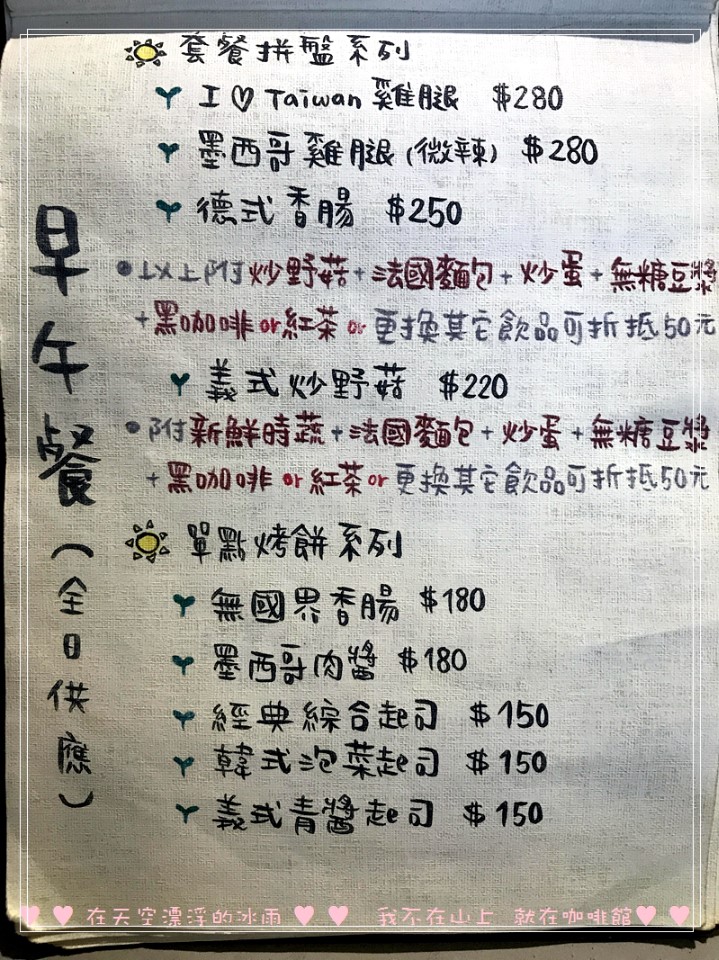 早午餐(全日供應)
套餐拼盤系列
I ♡ Taiwan 雞腿 $280
墨西哥雞腿(微辣) $280
德式香腸 $250
●以上附炒野菇+法國麵包+炒蛋+無糖豆漿
+黑咖啡or紅茶or更換其它飲品可折抵50元
義式炒野菇 $220
●附新鮮時蔬+法國麵包+炒蛋+無糖豆漿
+黑咖啡or紅茶or更換其它飲品可折抵50元
單點烤餅系列
無國界香腸 $180
墨西哥肉醬 $180
經典綜合起司 $150
韓式泡菜起司 $150
義式青醬起司 $150
♥ ♥ 在天空漂浮的冰雨 ♥ ♥ 我不在山上 就在咖啡館♥ ♥